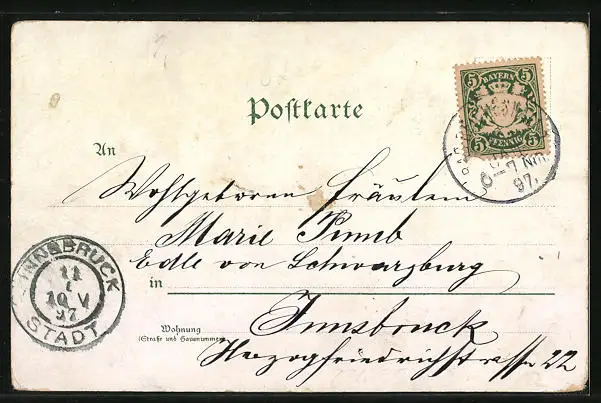 5 BAYERN 5
5 PFENNIG 5
Postkarte
7 NM
97.
An
Wohlgeboren Fräulein
Marie Pumb
Edle von Schwarzburg
in
Innsbruck
INNSBRUCK
11
10 V
97
STADT
Wohnung
(Straße und Hausnummer)
Herzogfriedrichstrasse 22